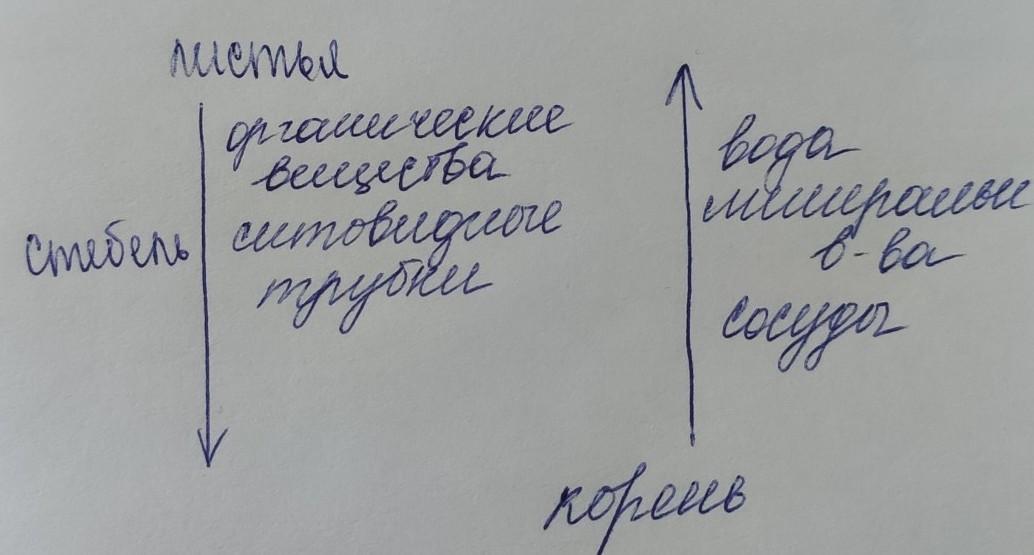 листья
органические
вещества
ситовидные
трубки
стебель
вода
минеральн
в-ва
сосуды
корень